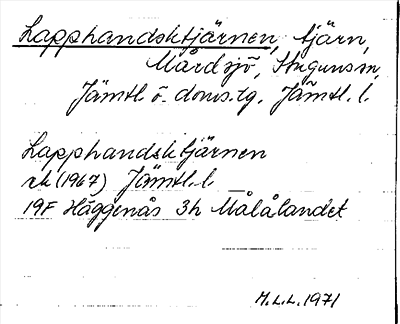 Lapphandsktjärnen, tjärn,
Mårdsjö, Stuguns sn,
Jämtl. ö. doms.tg. Jämtl. l.
Lapphandsktjärnen
rk (1967) Jämtl. l.
19F Häggenås 3h Målålandet
M.L.L. 1971